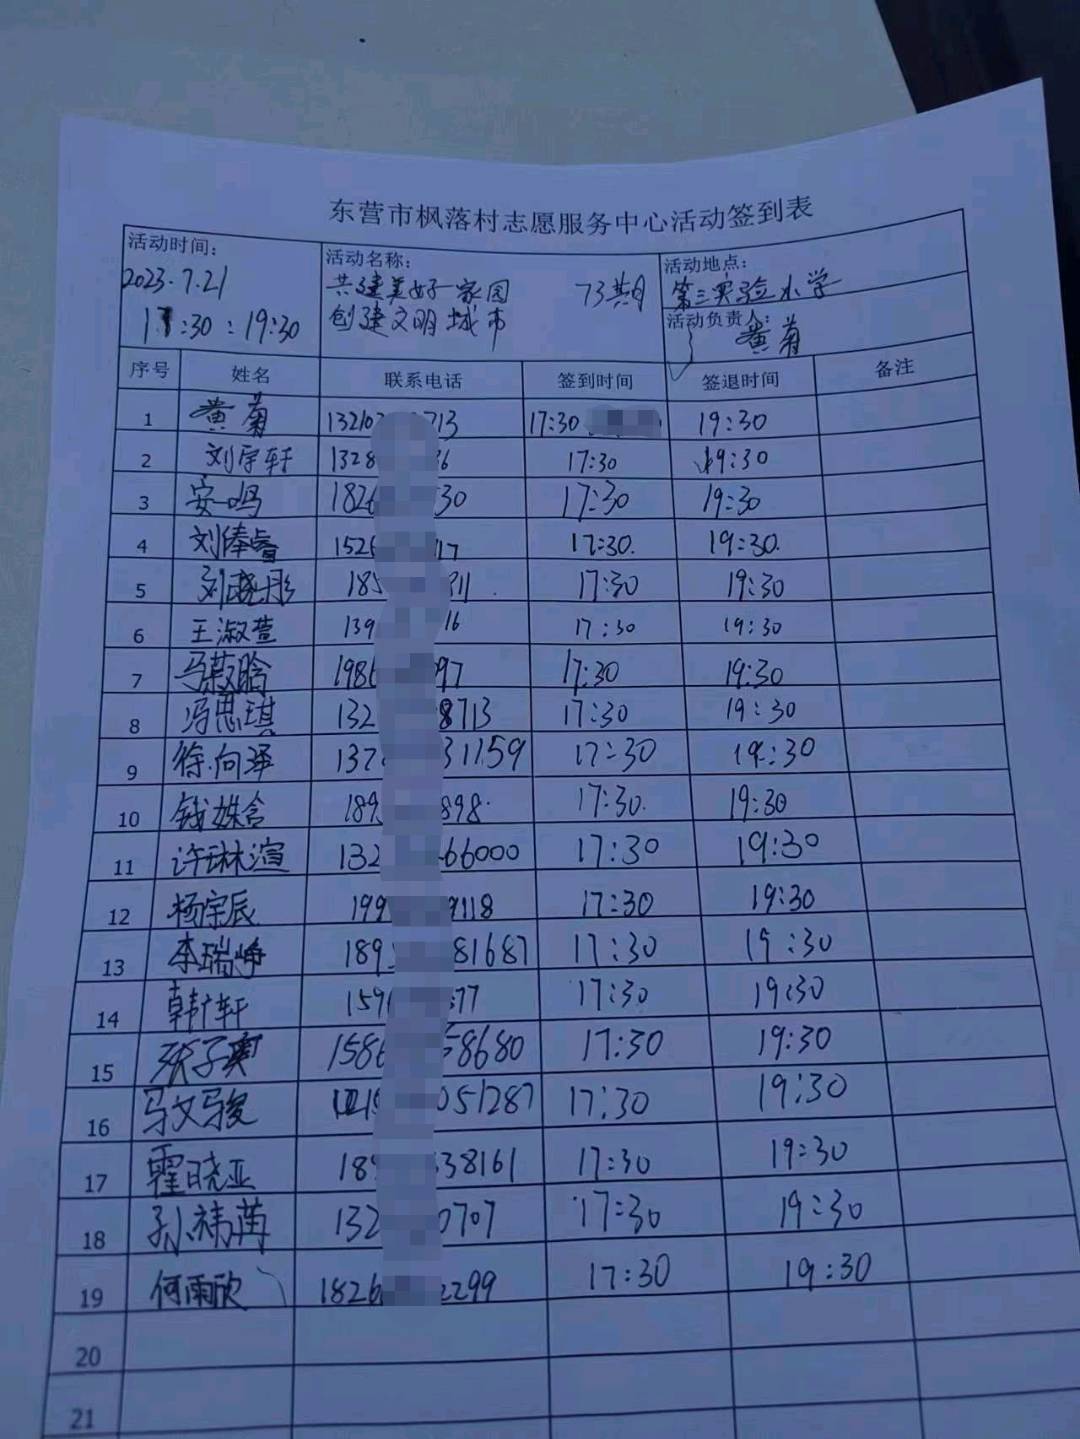 东营市枫落村志愿服务中心活动签到表
活动时间： 活动名称： 活动地点：
2023.7.21 共建美好家园 73期 第三实验小学
:30 : 19:30 创建文明城市 活动负责人： 黄菊
序号 姓名 联系电话 签到时间 签退时间 备注
1 黄菊 1321 713 17:30 19:30
2 刘宇轩 1328 6 17:30 19:30
3 安一鸣 182 30 17:30 19:30
4 刘俸睿 152 17 17:30. 19:30.
5 刘晓彤 18 11 17:30 19:30
6 王淑萱 139 16 17:30 19:30
7 马菽晗 198 97 17:30 19:30
8 冯思琪 132 8713 17:30 19:30
9 徐向泽 137 31159 17:30 19:30
10 钱姝含 189 898 17:30. 19:30
11 许琳渲 132 66000 17:30 19:30
12 杨宗辰 199 9118 17:30 19:30
13 李瑞峥 189 81687 17:30 19:30
14 韩广轩 159 77 17:30 19:30
15 张子奥 1586 58680 17:30 19:30
16 马文骏 051287 17:30 19:30
17 霍晓亚 189 38161 17:30 19:30
18 孙祎 132 0707 17:30 19:30
19 何雨欣 1826 2299 17:30 19:30
20
21